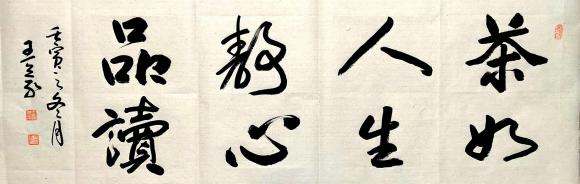 茶如
人生
静心
品讀
壬寅之冬月